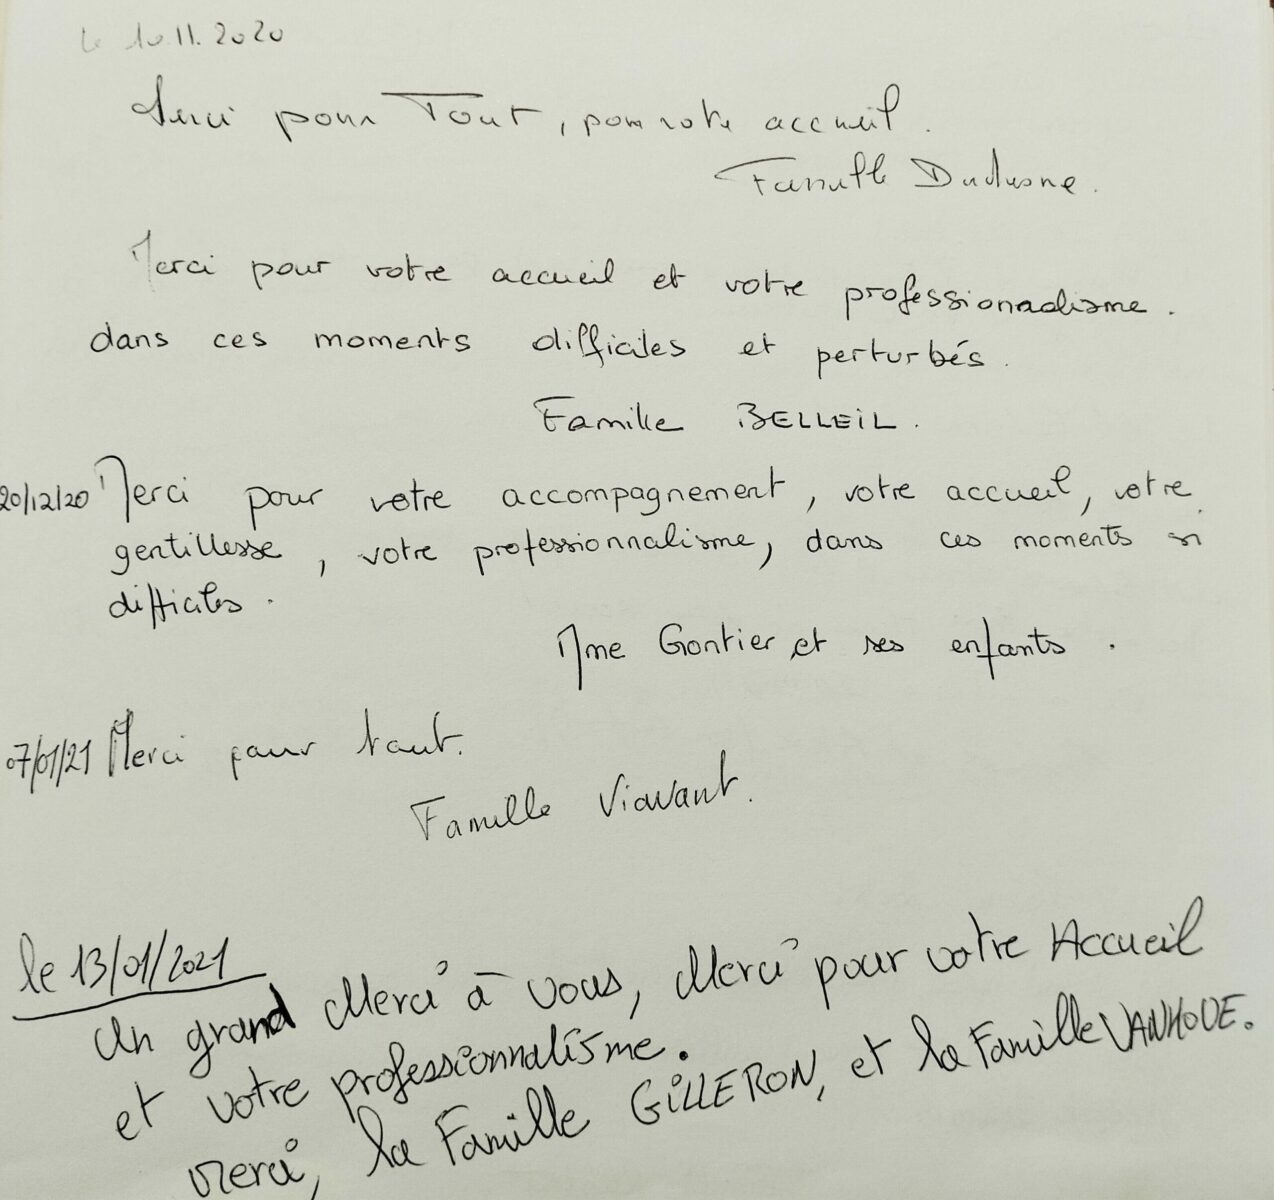 Le 10.11.2020
Merci pour Tout, pour votre accueil.
Famille
Merci pour votre accueil et votre professionnalisme.
dans ces moments difficiles et perturbés.
Famille BELLEIL.
20/12/20 Merci pour votre accompagnement, votre accueil, votre
gentillesse, votre professionnalisme, dans ces moments si
difficiles.
Mme Gontier et ses enfants.
07/01/21 Merci pour tout.
Famille Viavant.
le 13/01/2021
Un grand Merci à vous, Merci pour votre Accueil
et votre professionnalisme.
Merci, la Famille GILLERON, et la Famille VANHOVE.